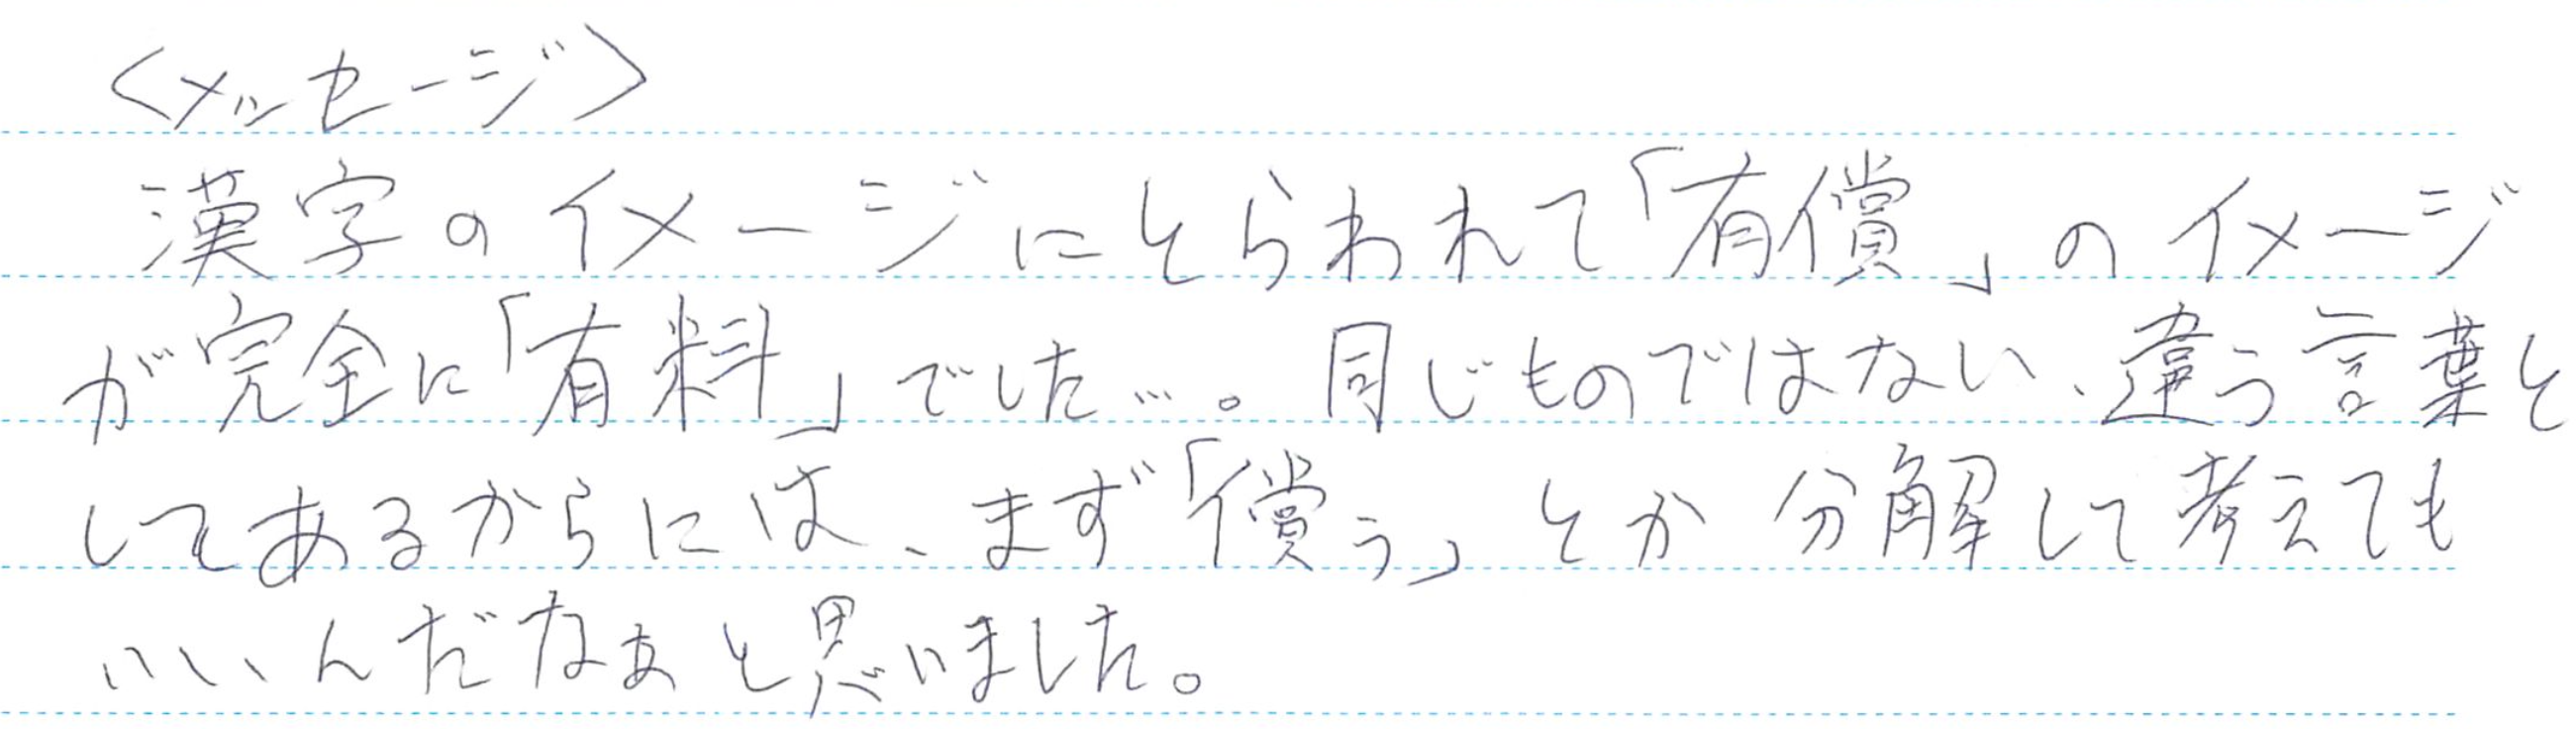 〈メッセージ〉
漢字のイメージにとらわれて「有償」のイメージ
が完全に「有料」でした…。同じものではない、違う言葉と
してあるからには、まず「償う」とか分解して考えても
いいんだなぁと思いました。